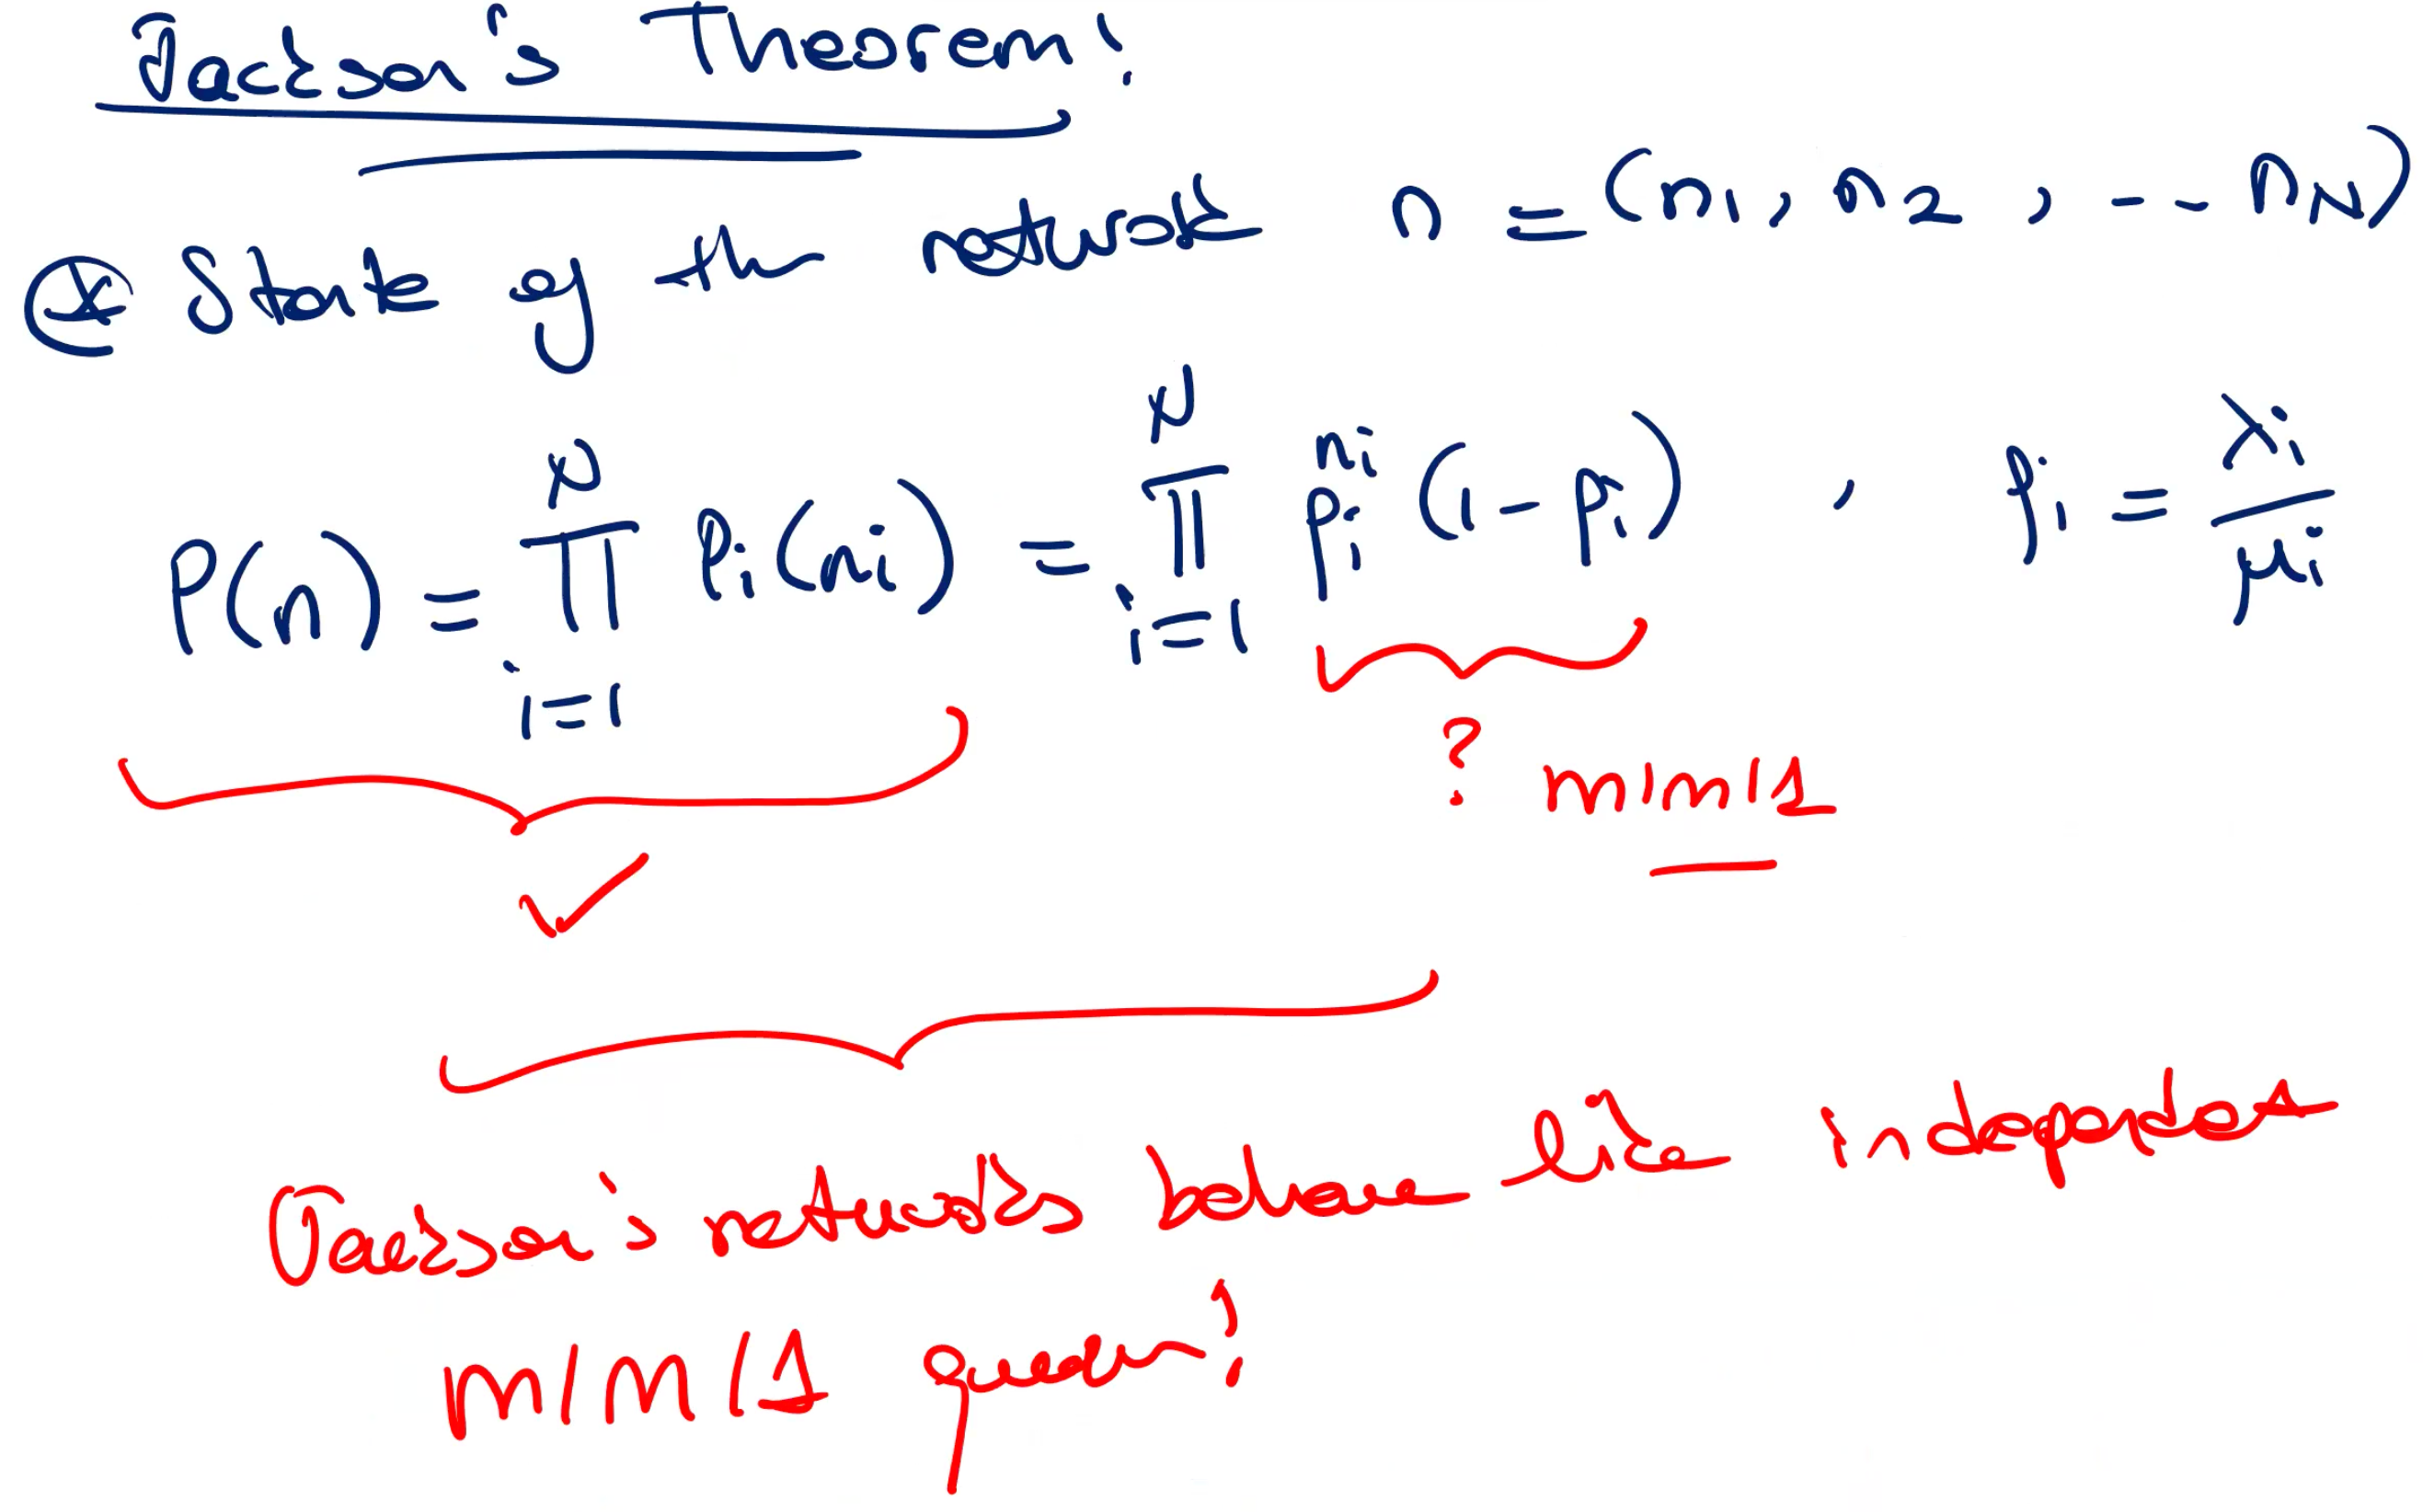 Jackson's Theorem!
⊛ State of the network n = (n₁, n₂, --- n_N)
P(n) = ∏_{i=1}^{N} P_i(n_i) = ∏_{i=1}^{N} ρ_i^{n_i} (1 - ρ_i) , ρ_i = λ_i / μ_i
? M/M/1
✓
Jackson's networks behave like independent
M/M/1 queues!